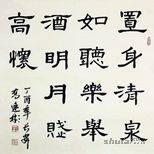 置身清泉
如聽樂舉
酒明月賦
高懷
丁酉年春